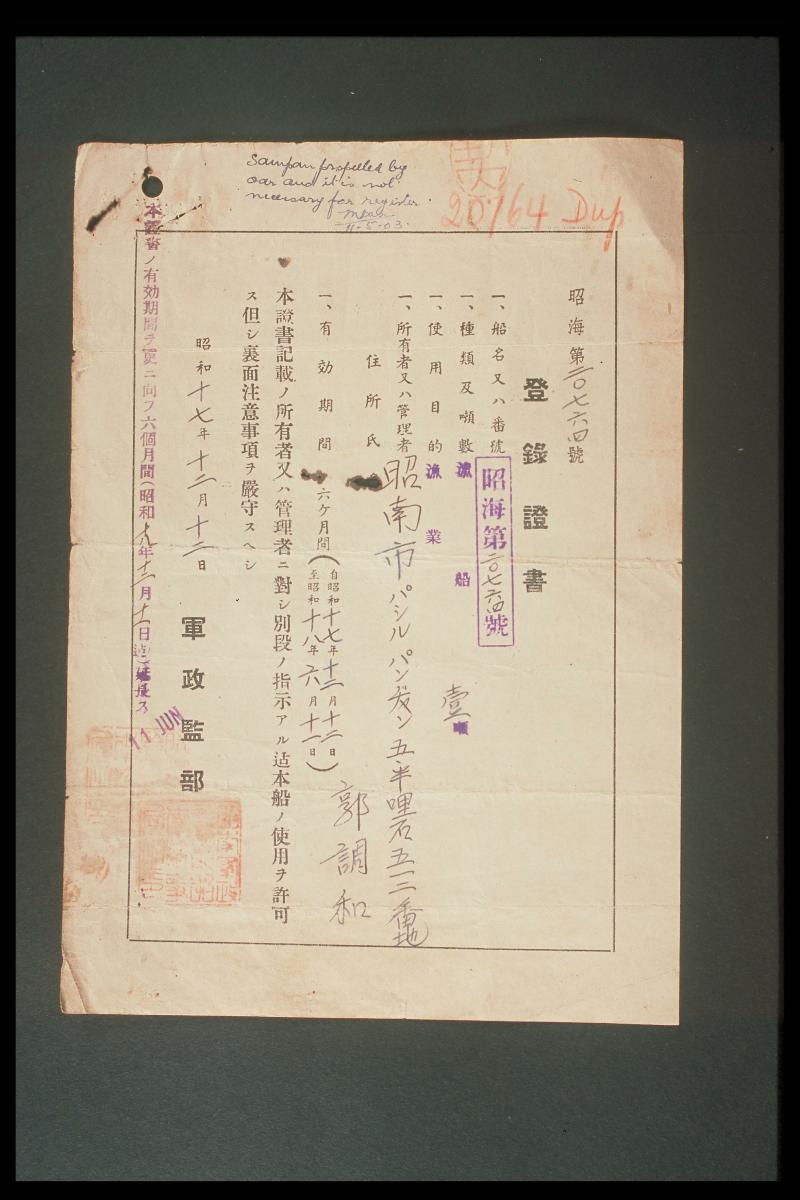 Sampan propelled by
oar and it is not
necessary for register.
11-5-03.
20764 Dup
昭海第二〇七六四號
登錄證書
一、船名又ハ番號 昭海第二〇七六四號
一、種類及噸數 漁船 壹噸
一、使用目的 漁業
一、所有者又ハ管理者 昭南市パシルパンヂャン五半哩石五一二番地
住所氏 郭調和
一、有効期間 六ケ月間(自昭和十七年十二月十二日
至昭和十八年六月十一日)
本證書記載ノ所有者又ハ管理者ニ對シ別段ノ指示アル迄本船ノ使用ヲ許可
ス但シ裏面注意事項ヲ嚴守スヘシ
昭和十七年十二月十二日
軍政監部
本證書ノ有効期間ヲ更ニ向フ六個月間(昭和十八年十二月十一日迄)延長ス
11 JUN